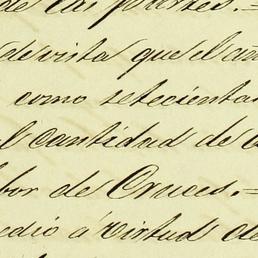 de las partes. =
de vista que el añ
como setecientas
l cantidad de
bor de Cruces. =
edió á virtud de